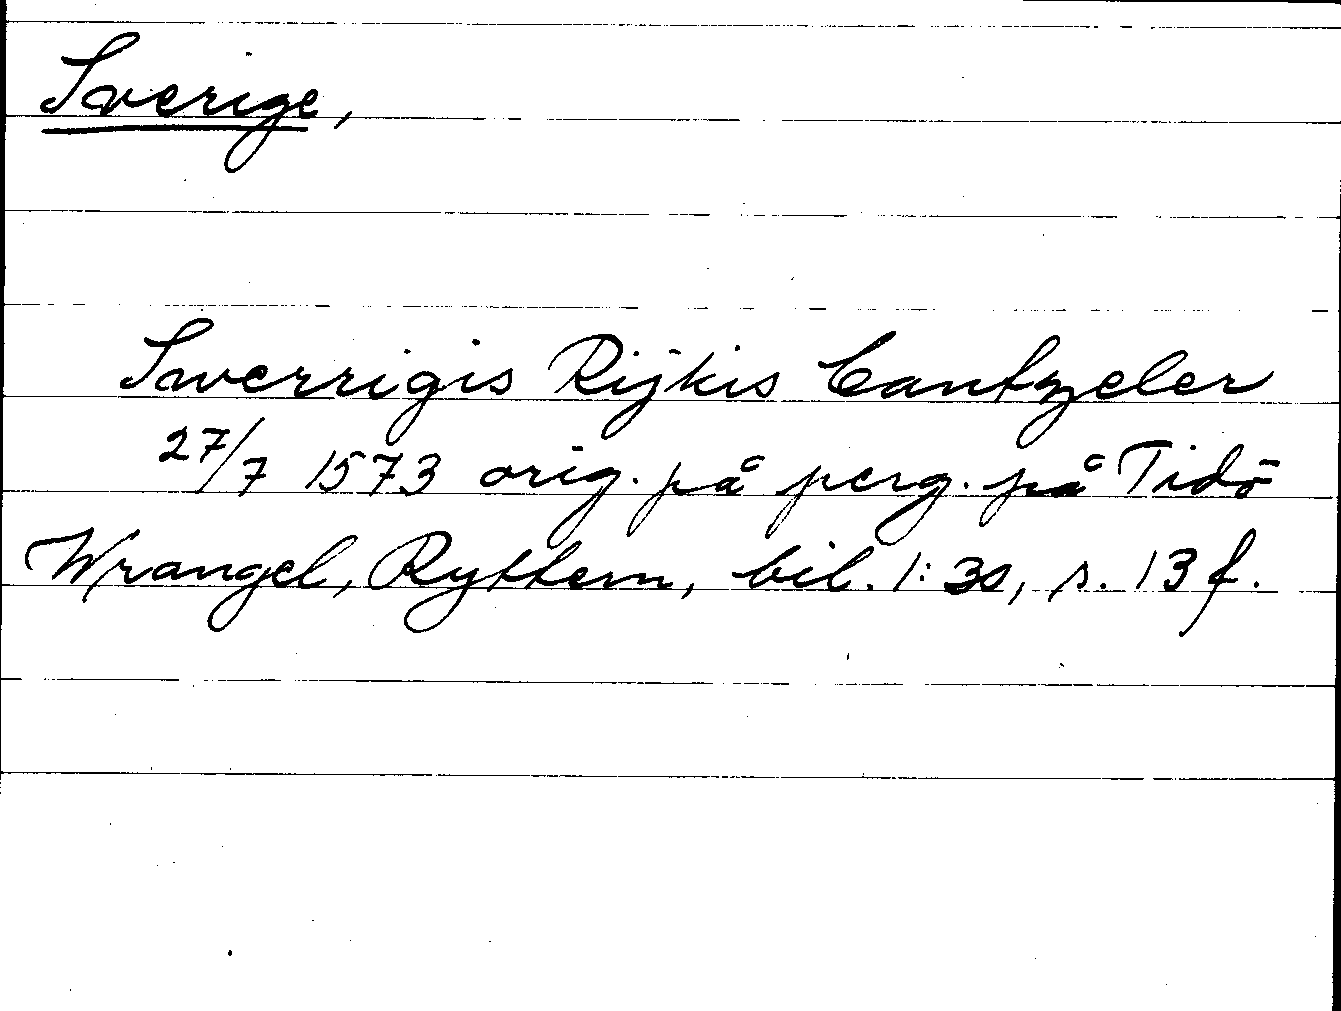 Sverige,
Swerrigis Rijkis Cantzeler
27/7 1573 orig. på perg. på Tidö
Wrangel, Ryttern, bil. 1:30, s. 13 f.